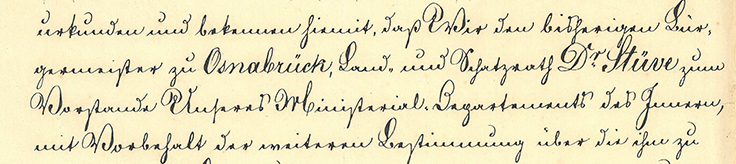 urkunden und bekennen hiemit, daß Wir den bisherigen Bür-
germeister zu Osnabrück, Land- und Schatzrath Dr. Stüve zum
Vorstande Unseres Ministerial-Departements des Innern,
mit Vorbehalt der weiteren Bestimmung über die ihm zu